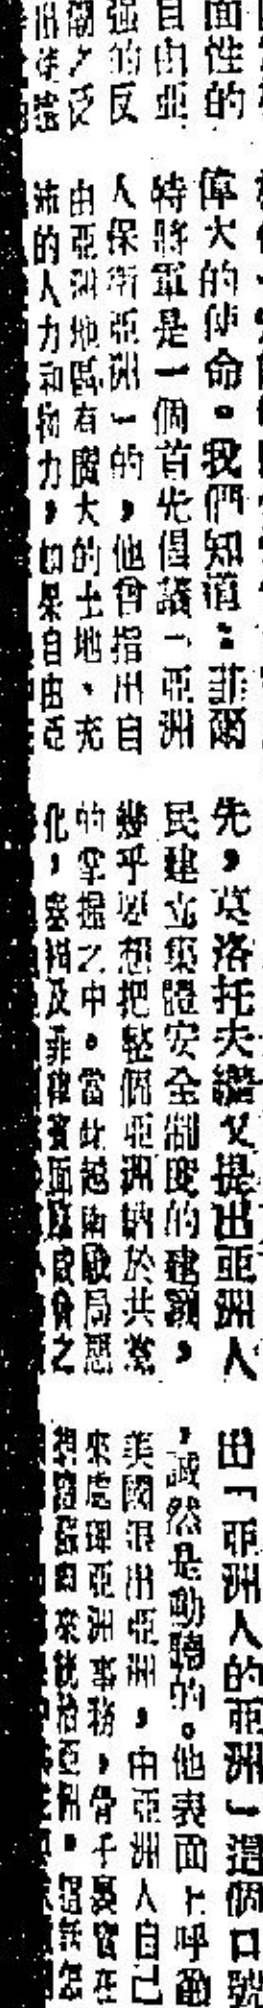 面性的
自由亞
强的反
潮之泛
偉大的使命。我們知道：菲爾
特將軍是一個首先倡議「亞洲
人保衛亞洲」的，他曾指出自
由亞洲地區有廣大的土地、充
沛的人力和物力，如果自由亞
先，莫洛托夫繼又提出亞洲人
民建立集體安全制度的建議，
幾乎想把整個亞洲納於共黨
的掌握之中。當此越南戰局惡
化，泰緬及菲律賓面臨威脅之
出「亞洲人的亞洲」這個口號
，誠然是動聽的。他表面上呼籲
美國退出亞洲，由亞洲人自己
來處理亞洲事務，骨子裏實在
想來統治亞洲。這話怎